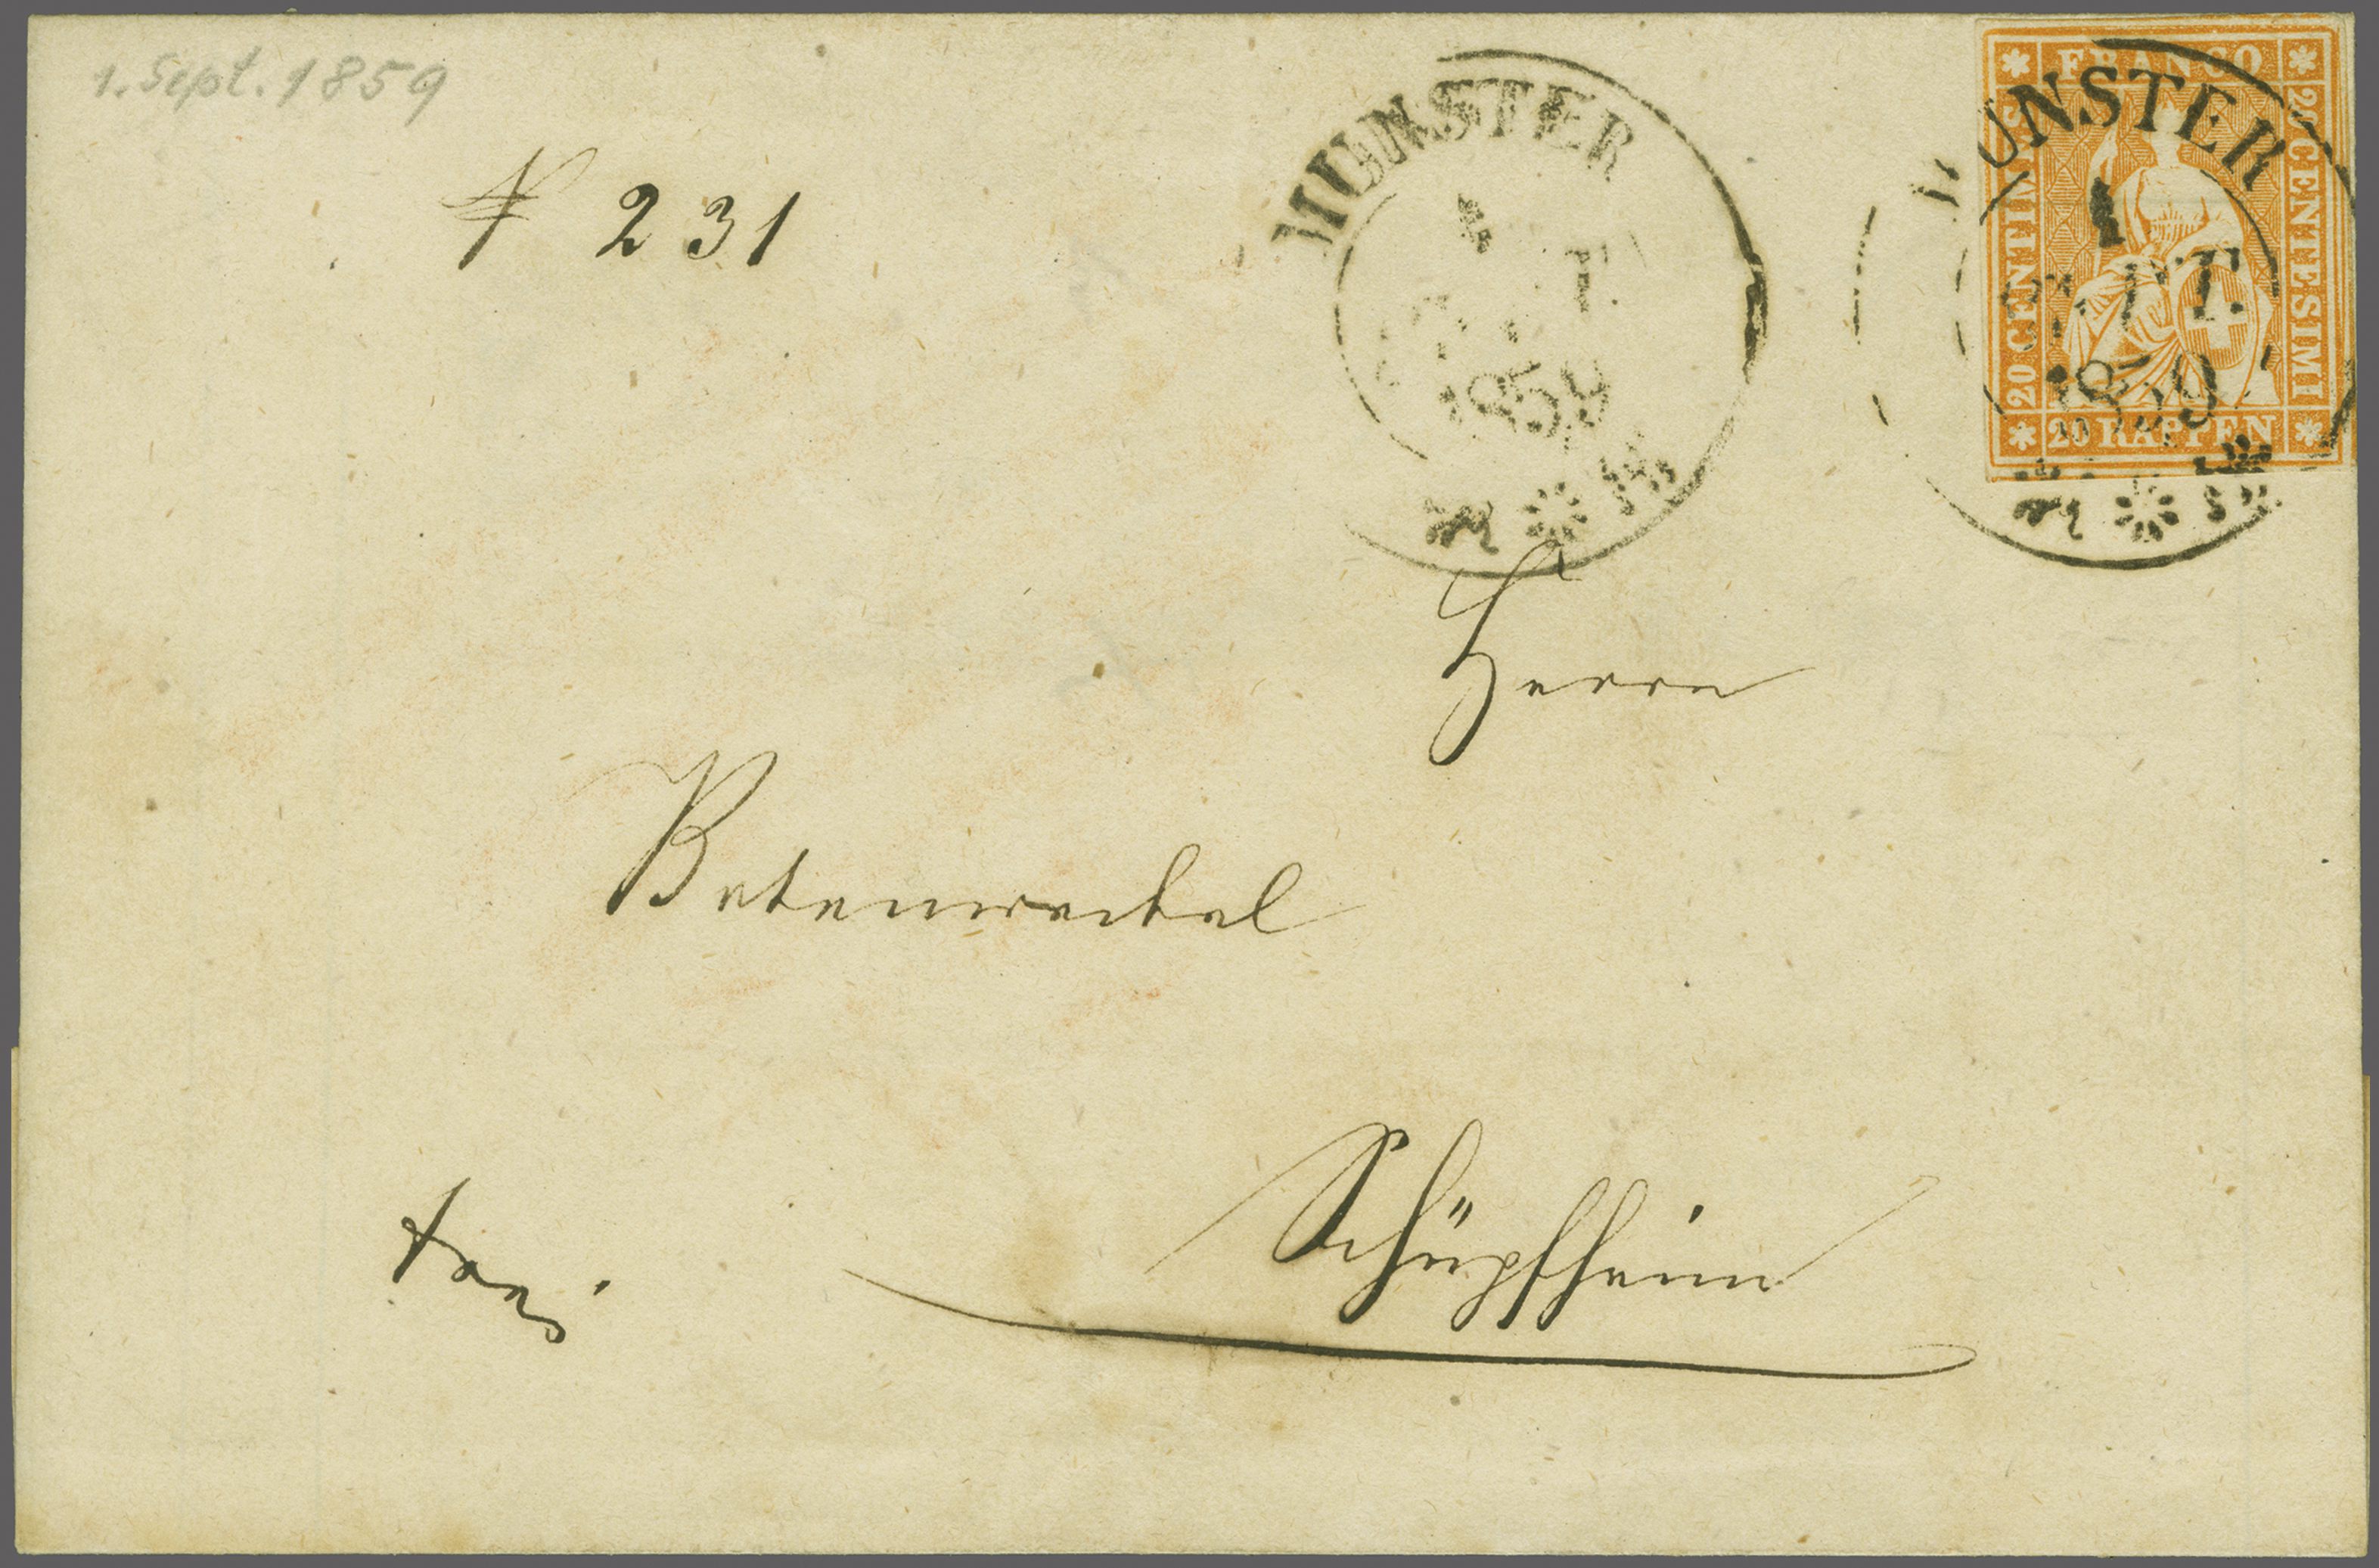 1. Sept. 1859
№ 231
MUNSTER
1
1859
FRANCO
20 CENTIMES
20 CENTESIMI
20 RAPPEN
MUNSTER
1
SEPT.
1859
Herrn
Schüpfheim